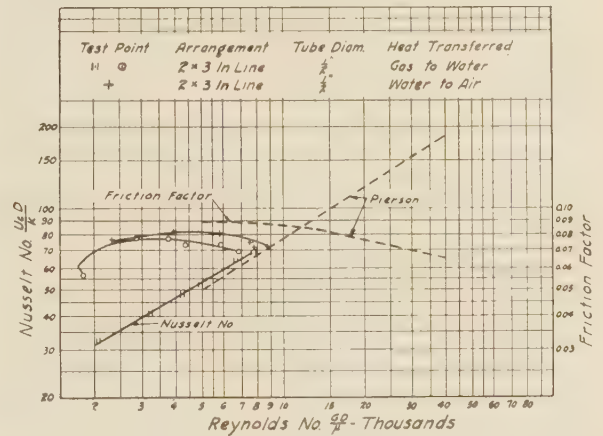 Test Point Arrangement Tube Diam. Heat Transferred
2 × 3 In Line 1/2" Gas to Water
+ 2 × 3 In Line 1/2" Water to Air
200
150
100
90
80
70
60
50
40
30
20
Nusselt No. UcD/K
Friction Factor
Pierson
Nusselt No
0.10
0.09
0.08
0.07
0.06
0.05
0.04
0.03
Friction Factor
2 3 4 5 6 7 8 9 10 20 30 40 50 60 70 80
Reynolds No. GD/μ - Thousands